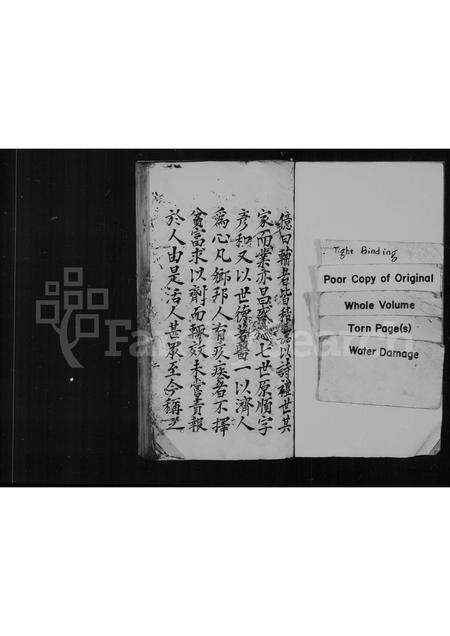 億曰輔者皆積書以詩禮世其
家而業亦昌盛七世原順字
彥和又以世德著醫一以濟人
為心凡鄉邦人有疾者不擇
貧富求以劑而輒效未嘗責報
於人由是活人甚眾至今稱之
Tight Binding
Poor Copy of Original
Whole Volume
Torn Page(s)
Water Damage
FamilySearch